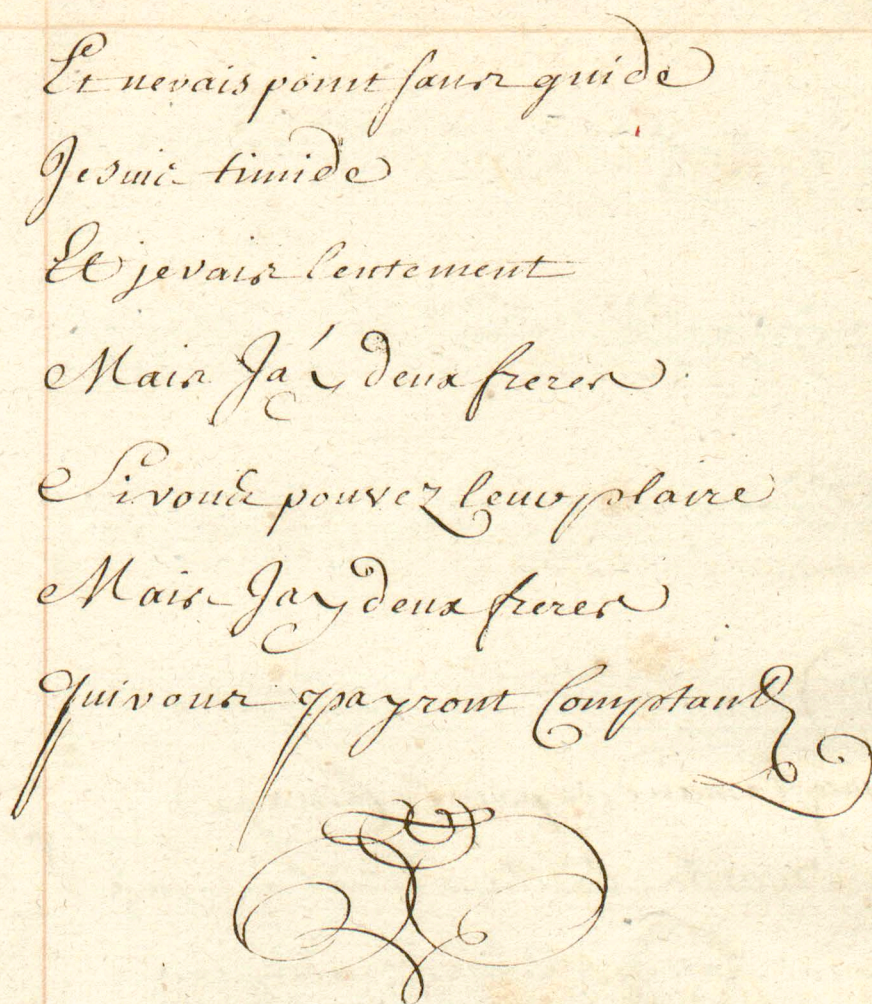 Et ne vais point sans guide
Je suis timide
Et je vais lentement
Mais Ja'y deux freres
Si vous pouvez leur plaire
Mais Jay deux freres
qui vous payront Comptant